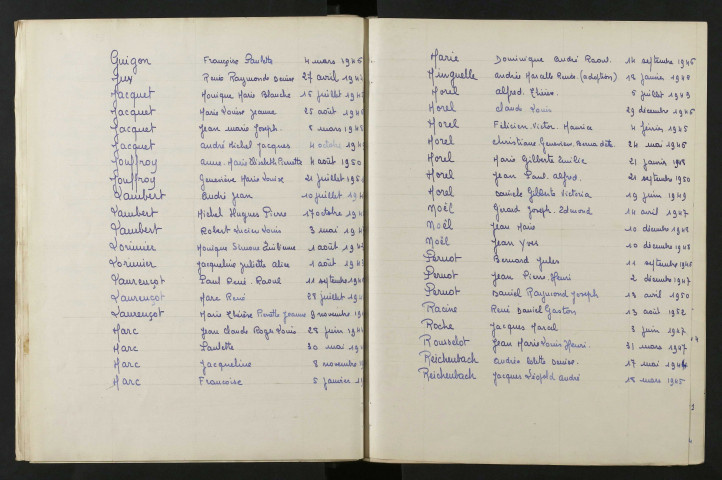 Guigon Françoise Paulette 4 mars 1945
Renée Raymonde Denise 27 avril 194
Jacquet Monique Marie Blanche 15 juillet 194
Jacquet Marie Louise Jeanne 25 août 194
Jacquet Jean marie Joseph. 8 mars 194
Jacquet André Michel Jacques 4 octobre 194
Jouffroy Anne. Marie Elisabeth Pierrette 4 août 1950
Jouffroy Geneviève Marie Louise 21 juillet 195
Lambert André Jean 10 juillet 194
Lambert Michel Hugues Pierre 17 octobre 194
Lambert Robert Lucien Louis 3 mai 194
Lorimier Monique Simone Emilienne 1 août 194
Lorimier Jacqueline Juliette Alice 1 août 194
Laurençot Paul René. Raoul 11 septembre 194
Laurençot Marc René 28 juillet 194
Laurençot Marie Thérèse Jeanne 9 novembre 19
Marc Jean Claude Roger Louis 28 juin 194
Marc Paulette 30 mai 194
Marc Jacqueline 8 novembre
Marc Françoise 5 janvier 19
Marie Dominique André Raoul. 14 septembre 1945
Minguelle Andrée Renée (adoption) 12 janvier 1948
Morel Alfred. 5 juillet 1949
Morel Claude Louis 29 décembre 1945
Morel Félicien. Victor. Maurice 4 février 1945
Morel Christiane Geneviève Bernadette 24 mai 1946
Morel Marie Gilberte Emilie 21 janvier 1948
Morel Jean Paul. Alfred. 21 septembre 1950
Morel Danièle Gilberte Victoria 19 juin 1949
Noël Gérard Joseph. Edmond 14 avril 1947
Noël Jean Marie 10 décembre 1948
Noël Jean Yves 10 décembre 1948
Pernot Bernard Jules 11 septembre 1945
Pernot Jean Pierre. Henri 2 décembre 1947
Pernot Daniel Raymond Joseph 18 avril 1950
Racine René Daniel Gaston 13 août 1952
Roche Jacques Marcel 3 juin 1947
Rousselot Jean Marie Louis Henri. 31 mars 1947
Reichenbach Andrée Colette Denise. 17 mai 194
Reichenbach Jacques Léopold André 18 mars 1945